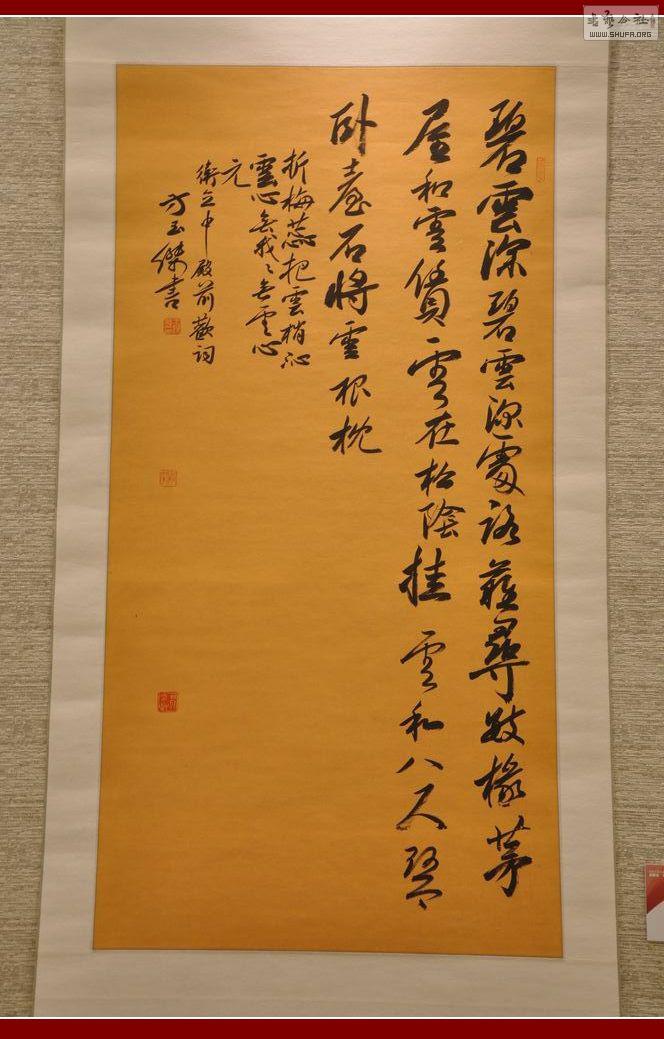 碧雲深碧雲深處路難尋數椽茅
屋和雲賃雲在松陰挂雲和八尺琴
卧臺石將雲根枕
折梅蕊把雲梢沁
雲心無我〻無雲心
元
衛立中殿前歡詞
方玉傑書
書藝公社
WWW.SHUFA.ORG